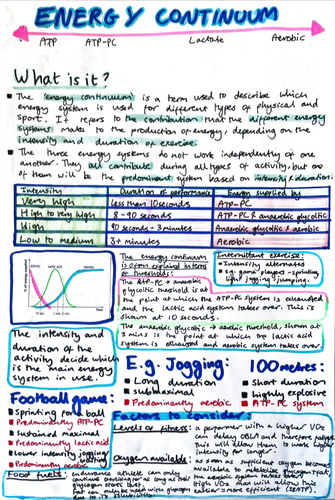 ENERGY CONTINUUM
ATP ATP-PC Lactate Aerobic
What is it?
The energy continuum is a term used to describe which
energy system is used for different types of physical and
sport. It refers to the contribution that the different energy
systems make to the production of energy, depending on the
intensity and duration of exercise.
The three energy systems do not work independently of one
another. They all contribute during all types of activity, but one
of them will be the predominant system based on intensity & duration.
Intensity Duration of performance Energy supplied by
Very high less than 10 seconds ATP-PC
High to very high 8-90 seconds ATP-PC & anaerobic glycolitic
High 90 seconds - 3 minutes Anaerobic glycolitic & aerobic
Low to medium 3+ minutes Aerobic
The energy continuum
is often explained in terms
of thresholds:
The ATP-PC → anaerobic
glycolitic threshold is at
the point at which the ATP-PC system is exhausted
and the lactic acid system takes over. This is
shown at 10 seconds.
The anaerobic glycolitic → aerobic threshold, shown at
is the point at which the lactic acid
system is exhausted and aerobic system takes over.
Intermittent exercise:
Intensity alternates
e.g. game players - sprinting,
light jogging, jumping.
ATP-PC LACTIC ACID AEROBIC
% of energy supplied
10 sec 1 min
The intensity and
duration of the
activity decide which
is the main energy
system in use.
E.g. Jogging:
Long duration
submaximal
Predominantly aerobic
100metres:
Short duration
highly explosive
ATP-PC system
Football game:
sprinting for ball
Predominantly ATP-PC
sustained maximal
Predominantly lactic acid
lower intensity jogging
Predominantly aerobic
Factors to consider:
Levels of fitness: a performer with a higher VO2
can delay OBLA and therefore
this will allow them to work higher
intensity for longer
Oxygen available: as soon as sufficient oxygen becomes
available
high VO2 max will allow this
Food fuels: endurance athlete can only
continue performing for as long as their
glycogen stores last.